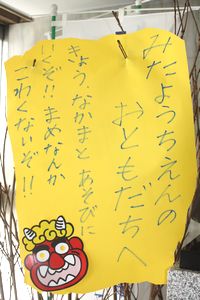 みたようちえんの
おともだちへ
きょう、なかまとあそびに
いくぞ!!まめなんか
こわくないぞ!!